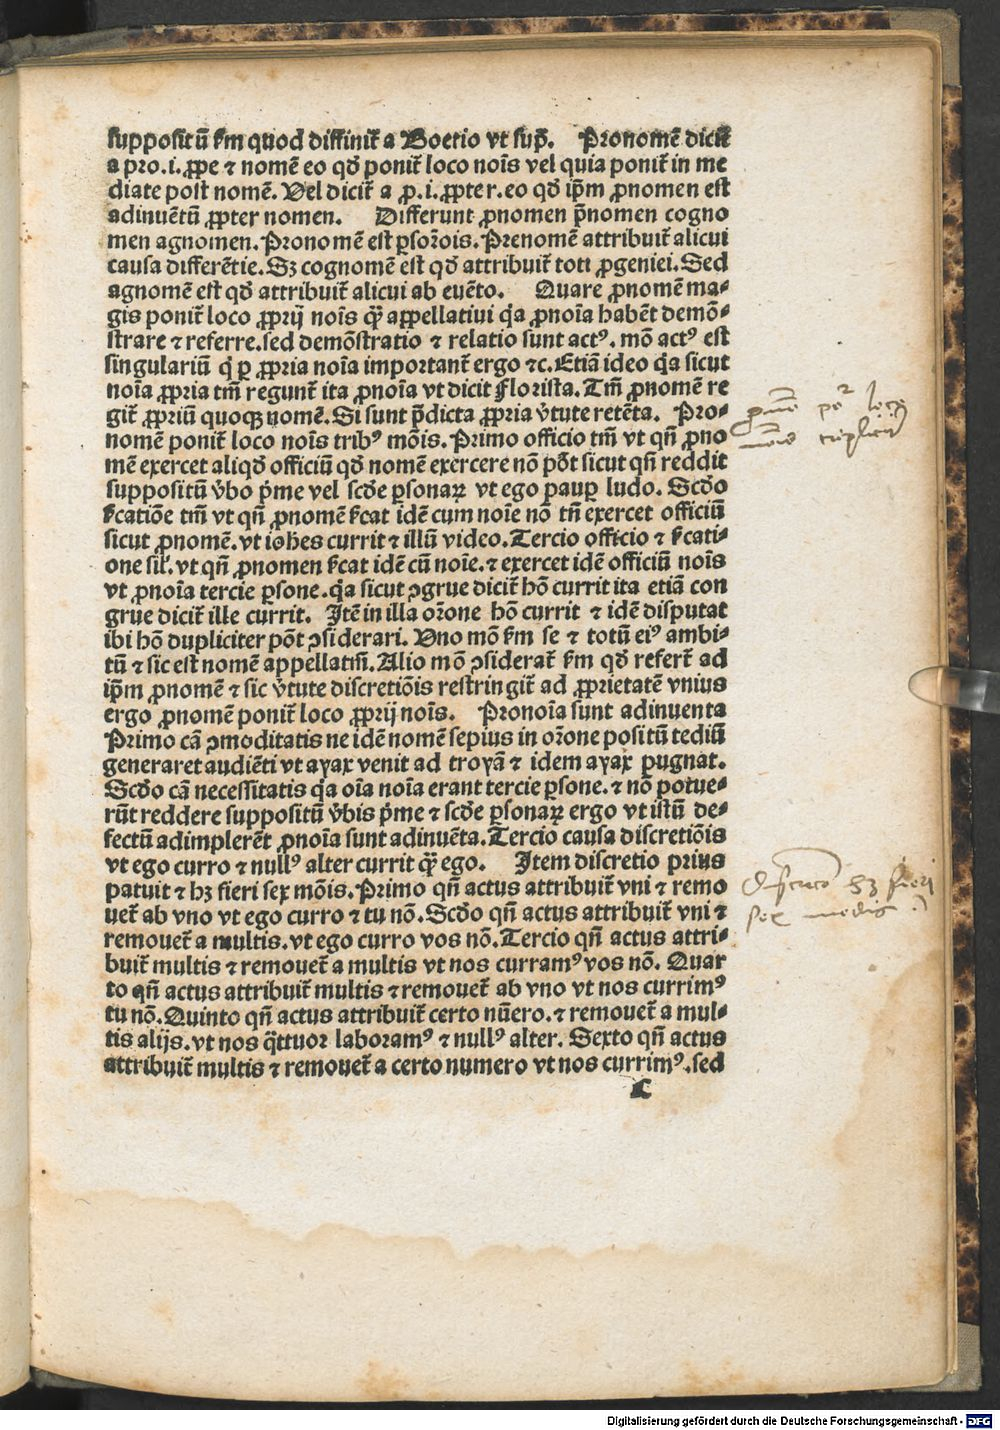 suppositū ẜm quod diffinit̄ a Boetio vt sup̄. Pronomē dicit̄
a pro.i.ꝓpe ⁊ nomē eo qď ponit̄ loco nois̄ vel quia ponit̄ in me
diate post nomē. Vel dicit̄ a ꝓ.i.ꝓpter.eo qď ip̄m ꝓnomen est
adinuētū ꝓpter nomen. Differunt ꝓnomen p̄nomen cogno
men agnomen. Pronomē est ꝑsoꝛois. Prenomē attribuit̄ alicui
causa differētie. Sꝫ cognomē est qď attribuit̄ toti ꝓgeniei. Sed
agnomē est qď attribuit̄ alicui ab euēto. Quare ꝓnomē ma⸗
gis ponit̄ loco ꝓprij nois̄ qͣꝫ appellatiui qͥa ꝓnoīa habēt demō⸗
strare ⁊ referre.sed demōstratio ⁊ relatio sunt actꝰ. mō actꝰ est
singulariū qͥ ꝑ ꝓpria noīa important̄ ergo ⁊c. Etiā ideo qͥa sicut
noīa ꝓpria tm̄ regunt̄ ita ꝓnoīa vt dicit Florista. Tm̄ ꝓnomē re
git̄ ꝓpriū quoqꝫ nomē. Si sunt p̄dicta ꝓpria v̄tute retēta. Pro⸗
nomē ponit̄ loco nois̄ tribꝰ mōis. Primo officio tm̄ vt qn̄ ꝓno
mē exercet aliqď officiū qď nomē exercere nō pōt sicut qn̄ reddit
suppositū v̄bo p̄me vel scďe ꝑsonaꝝ vt ego pauꝑ ludo. Scďo
ẜcatiōe tm̄ vt qn̄ ꝓnomē ẜcat idē cum noīe nō tn̄ exercet officiū
sicut ꝓnomē. vt ioħes currit ⁊ illū video. Tercio officio ⁊ ẜcati⸗
one sil̄. vt qn̄ ꝓnomen ẜcat idē cū noīe. ⁊ exercet idē officiū nois̄
vt ꝓnoīa tercie ꝑsone. qͥa sicut ꝯgrue dicit̄ hō currit ita etiā con
grue dicit̄ ille currit. Itē in illa oꝛōne hō currit ⁊ idē disputat
ibi hō dupliciter pōt ꝯsiderari. Vno mō ẜm se ⁊ totū eiꝰ ambi⸗
tū ⁊ sic est nomē appellatiū. Alio mō ꝯsiderat̄ ẜm qď refert̄ ad
ip̄m ꝓnomē ⁊ sic v̄tute discretiōis restringit̄ ad ꝓprietatē vnius
ergo ꝓnomē ponit̄ loco ꝓprij nois̄. Pronoīa sunt adinuenta
Primo cā ꝯmoditatis ne idē nomē sepius in oꝛōne positū tediū
generaret audiēti vt ayax venit ad troyā ⁊ idem ayax pugnat.
Scďo cā necessitatis qͥa oīa noīa erant tercie ꝑsone. ⁊ nō potue⸗
rūt reddere suppositū v̄bis p̄me ⁊ scďe ꝑsonaꝝ ergo vt istū de⸗
fectū adimplerēt ꝓnoīa sunt adinuēta. Tercio causa discretiōis
vt ego curro ⁊ nullꝰ alter currit qͣꝫ ego. Item discretio prius
patuit ⁊ hꝫ fieri sex mōis. Primo qn̄ actus attribuit̄ vni ⁊ remo
uet̄ ab vno vt ego curro ⁊ tu nō. Scďo qn̄ actus attribuit̄ vni ⁊
remouet̄ a multis. vt ego curro vos nō. Tercio qn̄ actus attri⸗
buit̄ multis ⁊ remouet̄ a multis vt nos curramꝰ vos nō. Quar
to qn̄ actus attribuit̄ multis ⁊ remouet̄ ab vno vt nos currimꝰ
tu nō. Quinto qn̄ actus attribuit̄ certo nūero. ⁊ remouet̄ a mul⸗
tis alijs. vt nos qͣttuoꝛ laboramꝰ ⁊ nullꝰ alter. Sexto qn̄ actus
attribuit̄ multis ⁊ remouet̄ a certo numero vt nos currimꝰ. sed
c
loco
tripliciter
hꝫ fieri
sex modis
Digitalisierung gefördert durch die Deutsche Forschungsgemeinschaft - DFG